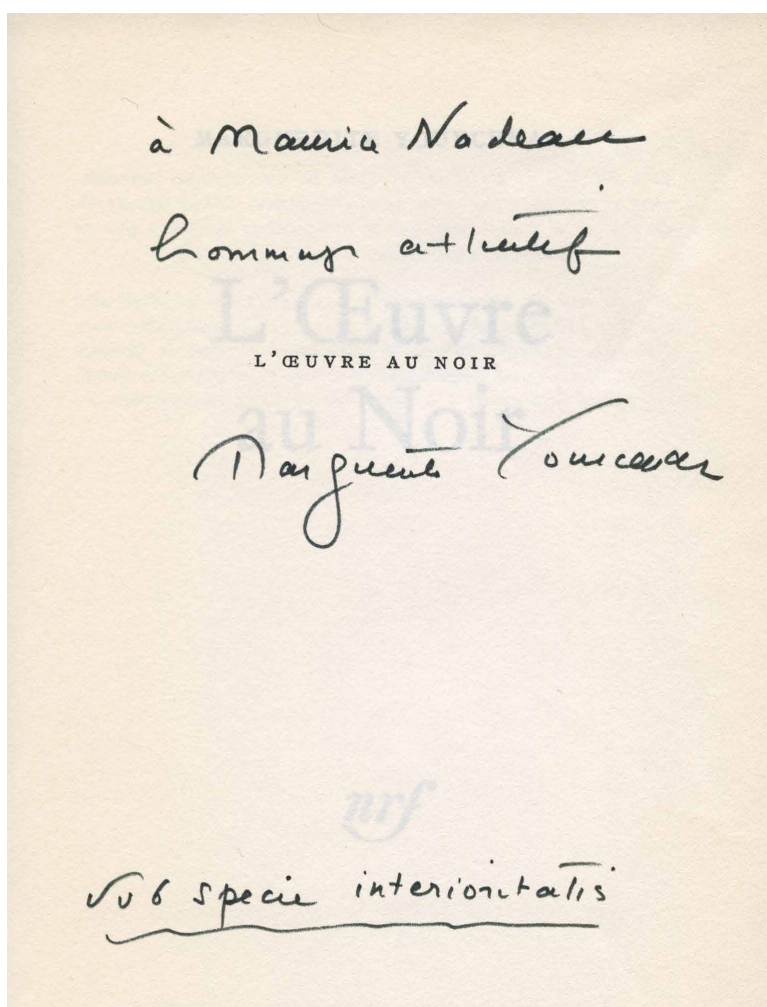 à Maurice Nadeau
hommage attentif
L'ŒUVRE AU NOIR
Marguerite Yourcenar
L'Œuvre
au Noir
nrf
Sub specie interioritatis